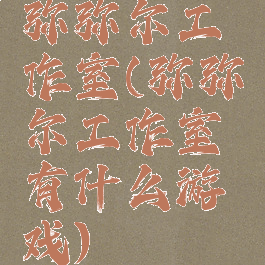 弥弥尔工
作室(弥弥
尔工作室
有什么游
戏)